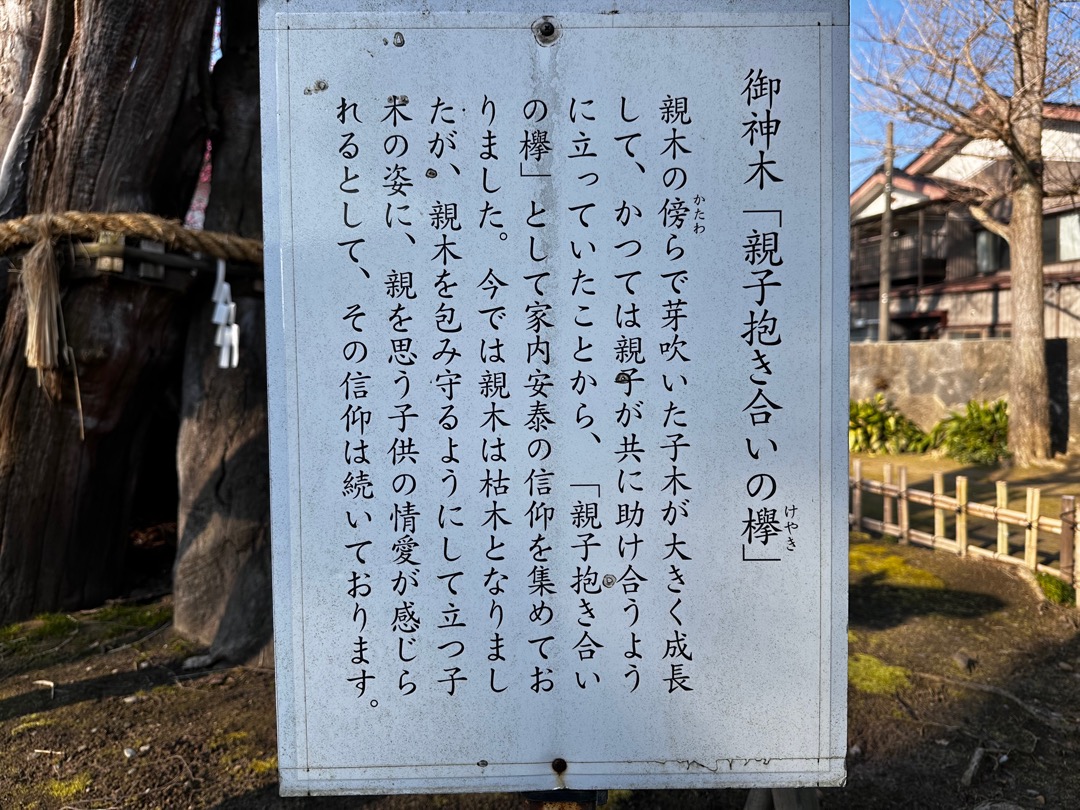 御神木「親子抱き合いの欅」
けやき
親木の傍らで芽吹いた子木が大きく成長
かたわ
して、かつては親子が共に助け合うよう
に立っていたことから、「親子抱き合い
の欅」として家内安泰の信仰を集めてお
りました。今では親木は枯木となりまし
たが、親木を包み守るようにして立つ子
木の姿に、親を思う子供の情愛が感じら
れるとして、その信仰は続いております。